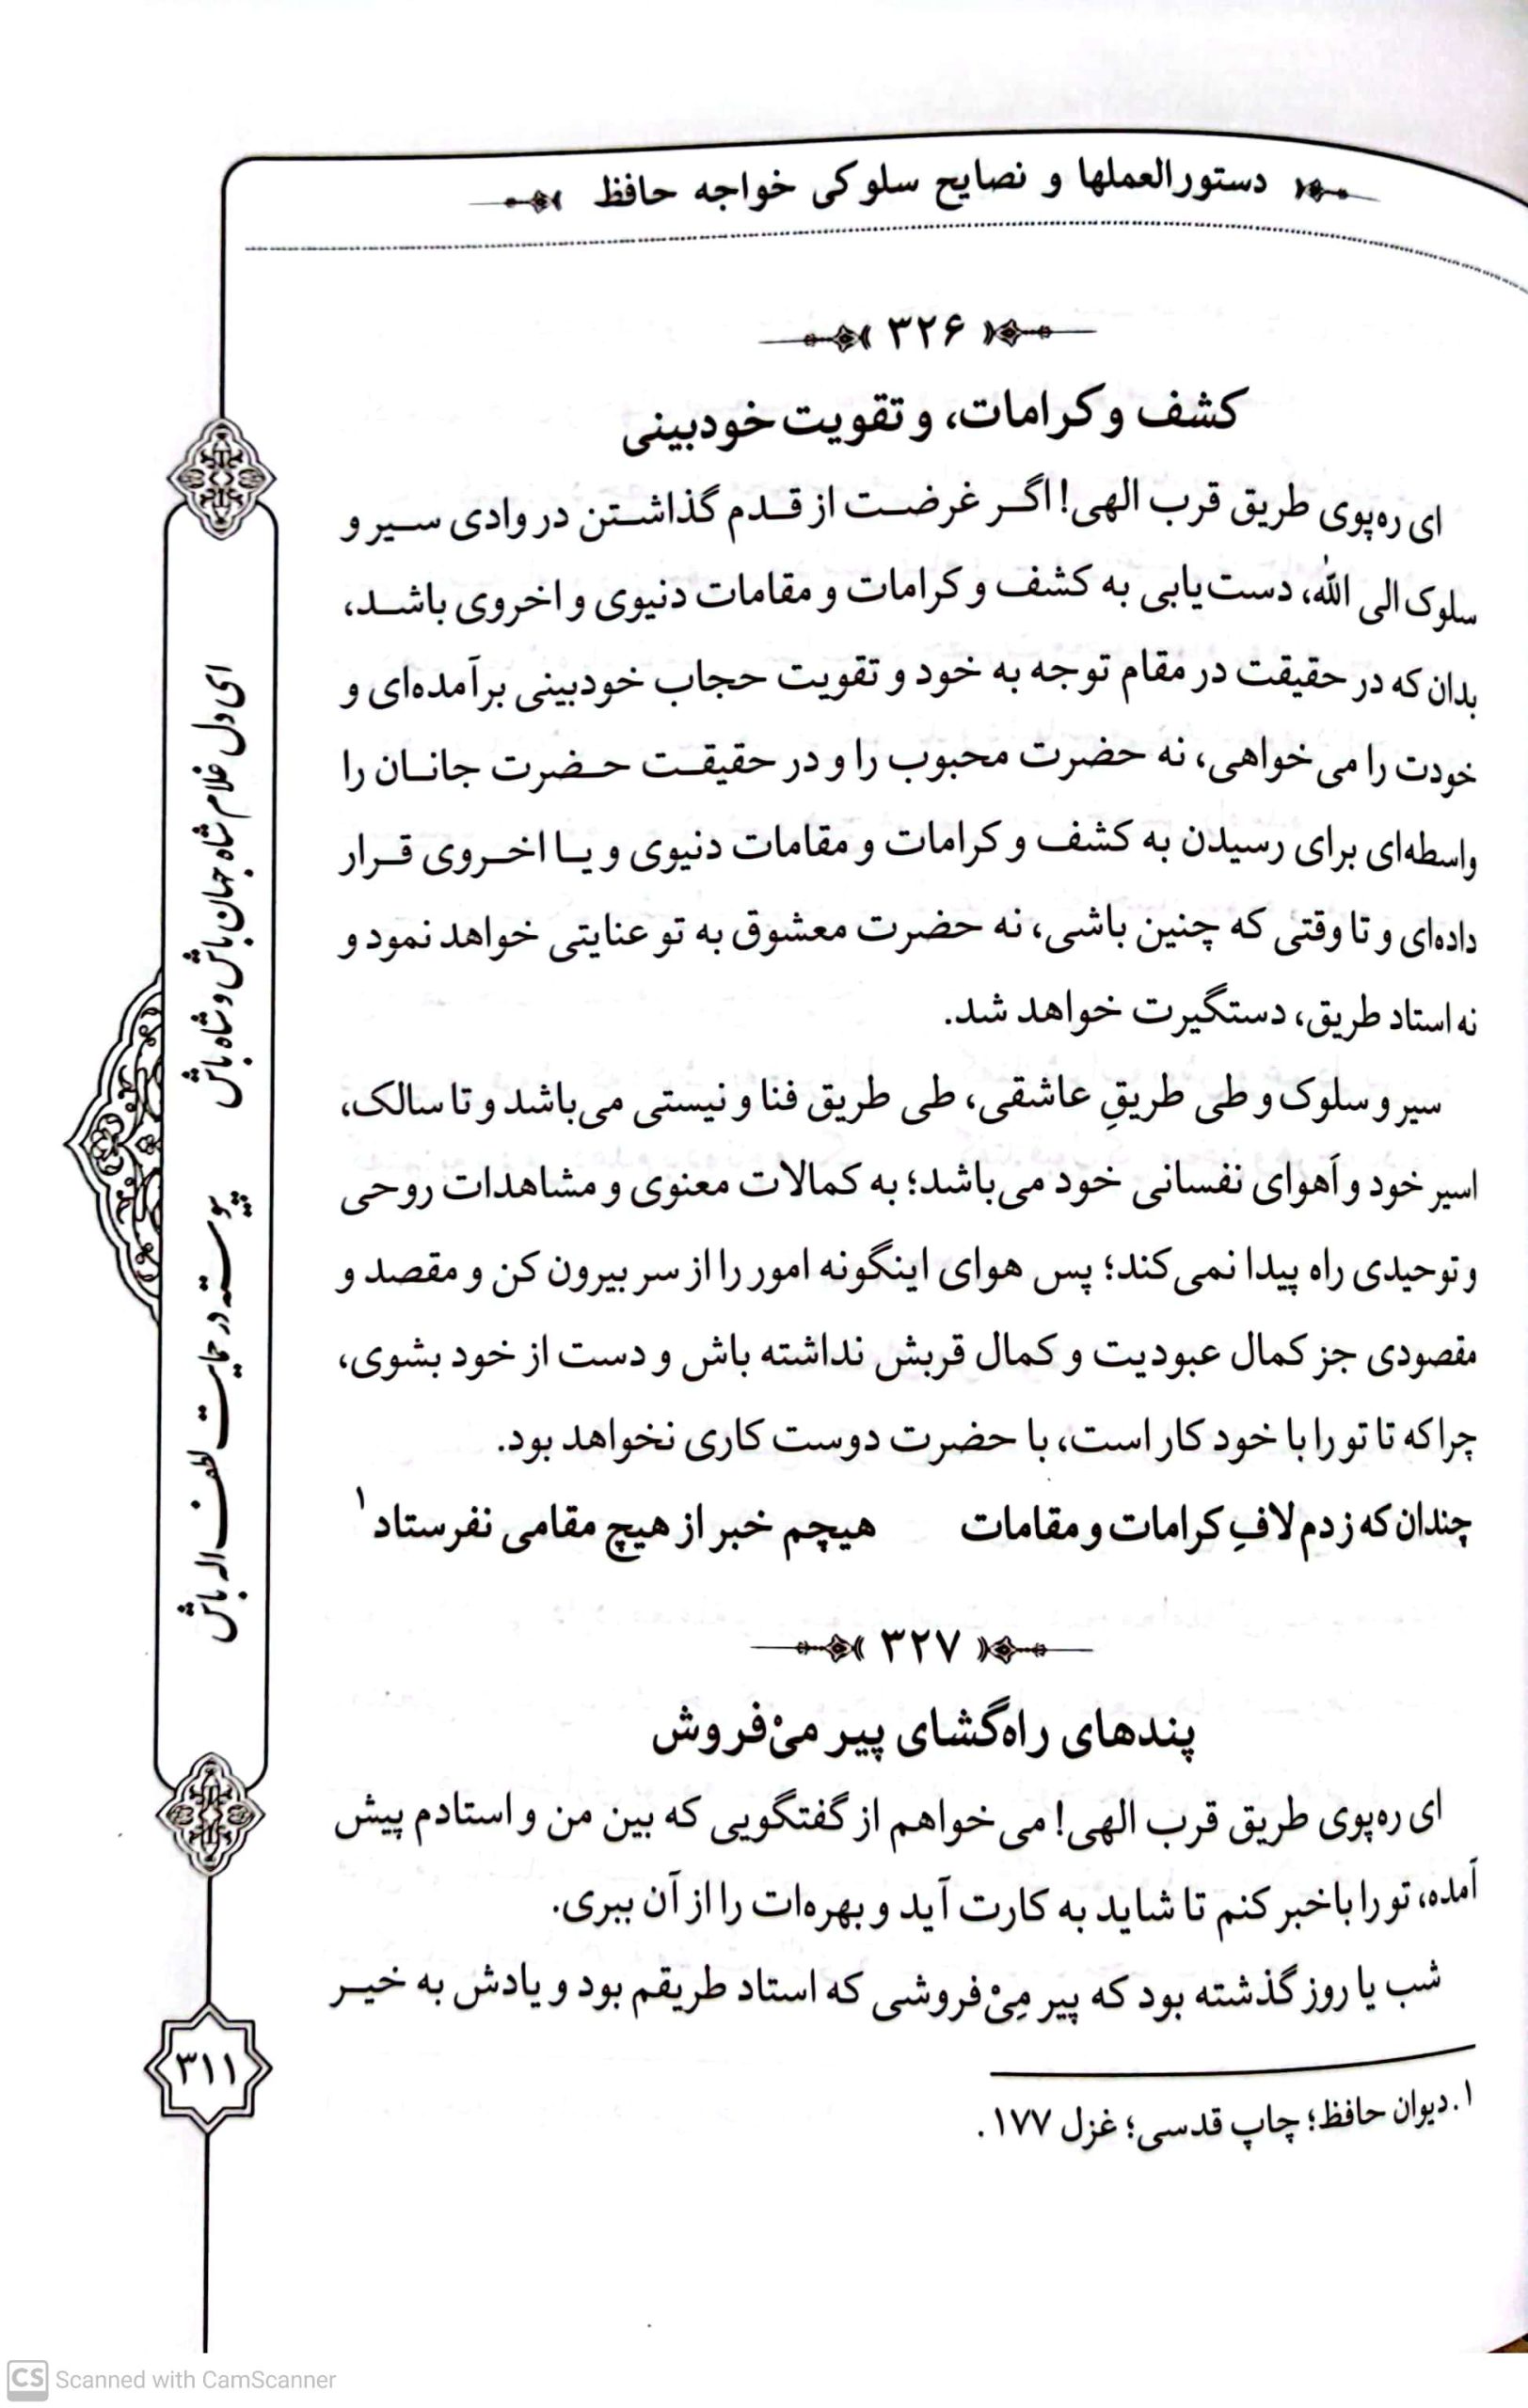 دستورالعملها و نصایح سلوکی خواجه حافظ
۳۲۶
کشف و کرامات، و تقویت خودبینی
ای ره‌پوی طریق قرب الهی! اگـر غرضـت از قـدم گذاشـتن در وادی سـیر و
سلوک الی الله، دست‌یابی به کشف و کرامات و مقامات دنیوی و اخروی باشـد،
بدان که در حقیقت در مقام توجه به خود و تقویت حجاب خودبینی برآمده‌ای و
خودت را می‌خواهی، نه حضرت محبوب را و در حقیقـت حـضرت جانـان را
واسطه‌ای برای رسیدن به کشف و کرامات و مقامات دنیوی و یـا اخـروی قـرار
داده‌ای و تا وقتی که چنین باشی، نه حضرت معشوق به تو عنایتی خواهد نمود و
نه استاد طریق، دستگیرت خواهد شد.
سیر و سلوک و طی طریقِ عاشقی، طی طریق فنا و نیستی می‌باشد و تا سالک،
اسیر خود و اَهوای نفسانی خود می‌باشد؛ به کمالات معنوی و مشاهدات روحی
و توحیدی راه پیدا نمی‌کند؛ پس هوای اینگونه امور را از سر بیرون کن و مقصد و
مقصودی جز کمال عبودیت و کمال قربش نداشته باش و دست از خود بشوی،
چرا که تا تو را با خود کار است، با حضرت دوست کاری نخواهد بود.
چندان که زدم لافِ کرامات و مقامات هیچم خبر از هیچ مقامی نفرستاد ۱
۳۲۷
پندهای راه‌گشای پیر میْ‌فروش
ای ره‌پوی طریق قرب الهی! می‌خواهم از گفتگویی که بین من و استادم پیش
آمده، تو را باخبر کنم تا شاید به کارت آید و بهره‌ات را از آن ببری.
شب یا روز گذشته بود که پیر مِیْ‌فروشی که استاد طریقم بود و یادش به خیـر
۱. دیوان حافظ؛ چاپ قدسی؛ غزل ۱۷۷.
ای دل غلام شاه جهان باش و شاه باش
پیوسته در حمایت لطف اله باش
۳۱۱
CS Scanned with CamScanner